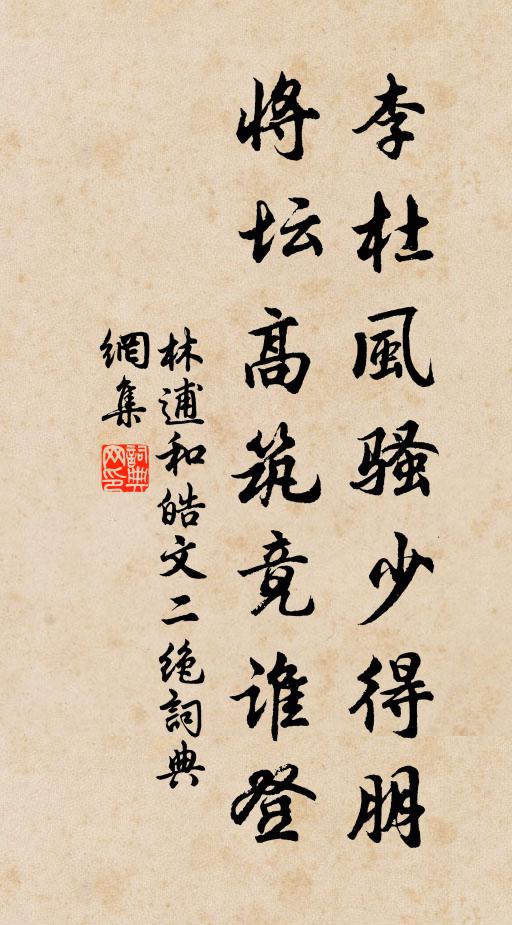 李杜風骚少得朋
将坛高筑竟谁登
林逋和皓文二绝詞典
網集
詞典
网印